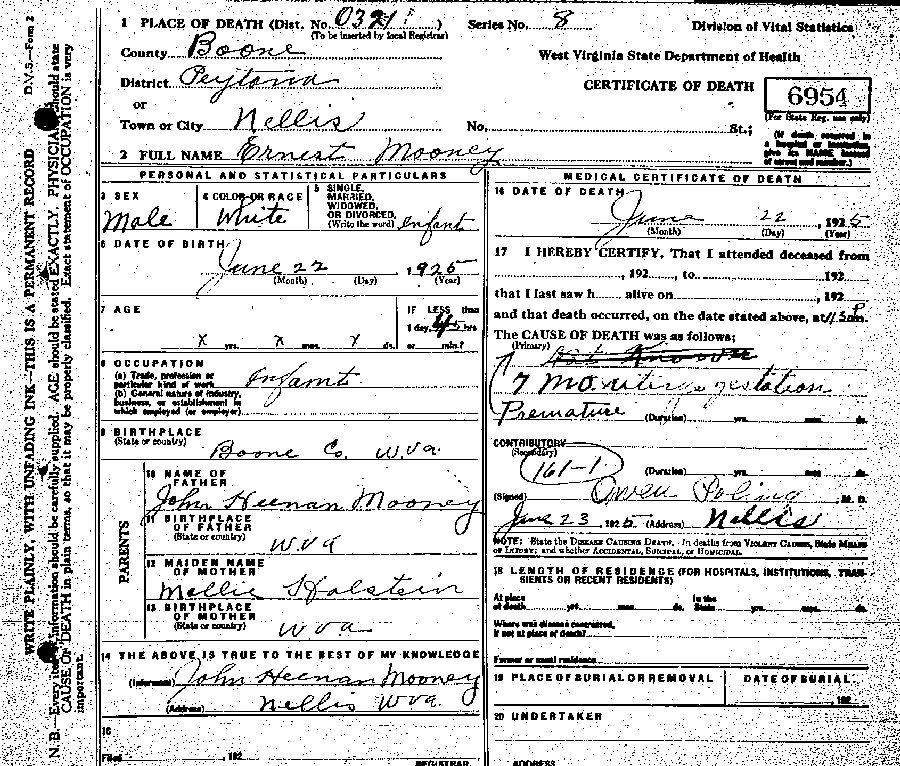 1 PLACE OF DEATH (Dist. No. 0321 ) Series No. 8 Division of Vital Statistics
(To be inserted by local Registrar)
County Boone West Virginia State Department of Health
District Peytona CERTIFICATE OF DEATH
or 6954
Town or City Nellis No. St.; (For State Reg. use only)
(If death occurred in a hospital or institution give its NAME instead of street and number.)
2 FULL NAME Ernest Mooney
PERSONAL AND STATISTICAL PARTICULARS
3 SEX Male
4 COLOR OR RACE White
5 SINGLE, MARRIED, WIDOWED, OR DIVORCED, (Write the word) enfant
6 DATE OF BIRTH
June 22 , 1925
(Month) (Day) (Year)
7 AGE IF LESS than
1 day, hrs
x yrs. x mos. x ds. or min.?
8 OCCUPATION
(a) Trade, profession or particular kind of work enfant
(b) General nature of industry, business, or establishment in which employed (or employer)
9 BIRTHPLACE
(State or country) Boone Co. W.Va.
PARENTS
10 NAME OF FATHER
John Heenan Mooney
11 BIRTHPLACE OF FATHER
(State or country) W Va
12 MAIDEN NAME OF MOTHER
Mellie Holstein
13 BIRTHPLACE OF MOTHER
(State or country) W Va
14 THE ABOVE IS TRUE TO THE BEST OF MY KNOWLEDGE
(Informant) John Heenan Mooney
(Address) Nellis W Va.
15
Filed , 192
REGISTRAR
MEDICAL CERTIFICATE OF DEATH
16 DATE OF DEATH
June 22 , 1925
(Month) (Day) (Year)
17 I HEREBY CERTIFY, That I attended deceased from
, 192 , to , 192
that I last saw h alive on , 192
and that death occurred, on the date stated above, at m.
The CAUSE OF DEATH was as follows:
(Primary) Not Known
7 mo. gestation
Premature (Duration) yrs. mos. ds.
CONTRIBUTORY
(Secondary)
161-1 (Duration) yrs. mos. ds.
(Signed) Owen Poling M. D.
June 23, 1925 (Address) Nellis
NOTE: State the DISEASE CAUSING DEATH. In deaths from VIOLENT CAUSES, State MEANS OF INJURY; and whether ACCIDENTAL, SUICIDAL, or HOMICIDAL.
18 LENGTH OF RESIDENCE (FOR HOSPITALS, INSTITUTIONS, TRANSIENTS OR RECENT RESIDENTS)
At place of death yrs. mos. ds. In the State yrs. mos. ds.
Where was disease contracted, if not at place of death?
Former or usual residence
19 PLACE OF BURIAL OR REMOVAL DATE OF BURIAL
, 192
20 UNDERTAKER
ADDRESS
D.V.S.—Form 2
WRITE PLAINLY, WITH UNFADING INK—THIS IS A PERMANENT RECORD
N.B.—Every item of information should be carefully supplied. AGE should be stated EXACTLY. PHYSICIANS should state
CAUSE OF DEATH in plain terms, so that it may be properly classified. Exact statement of OCCUPATION is very
important.